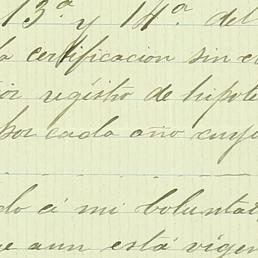 13ª y 14ª del
certificacion sin
registro de hipote
por cada año cuyo
do á mi voluntad
aun está vigen